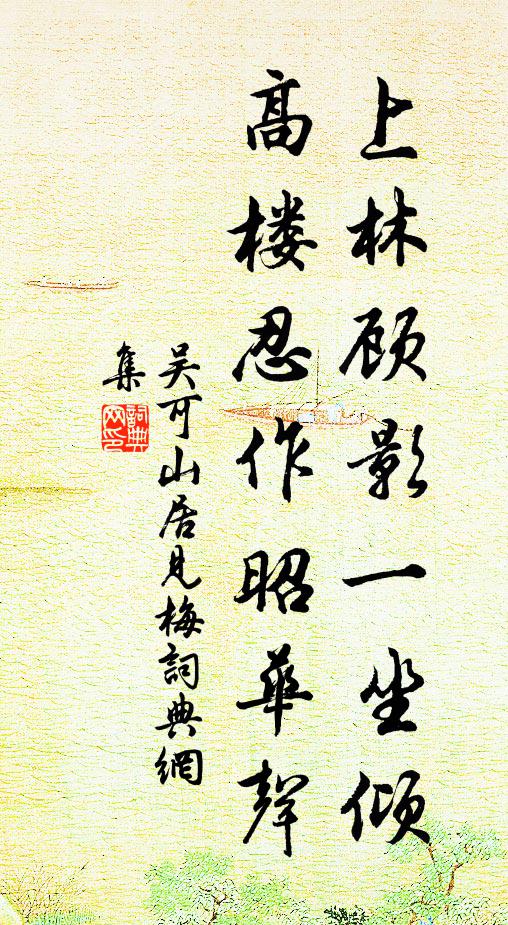 上林顾影一坐倾
高楼忍作昭华声
吴可山居见梅詞典網
集
詞典
网印